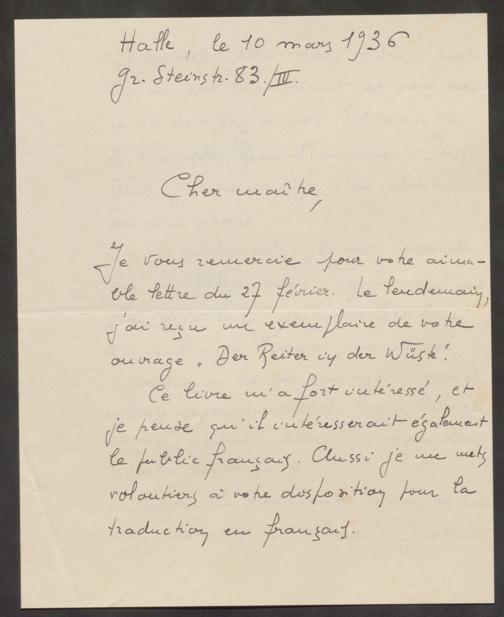 Halle, le 10 mars 1936
gr. Steinstr. 83./IV.
Cher maître,
Je vous remercie pour votre aima-
ble lettre du 27 février. Le lendemain,
j'ai reçu un exemplaire de votre
ouvrage „Der Reiter in der Wüste".
Ce livre m'a fort intéressé, et
je pense qu'il intéresserait également
le public français. Aussi je me mets
volontiers à votre disposition pour la
traduction en français.